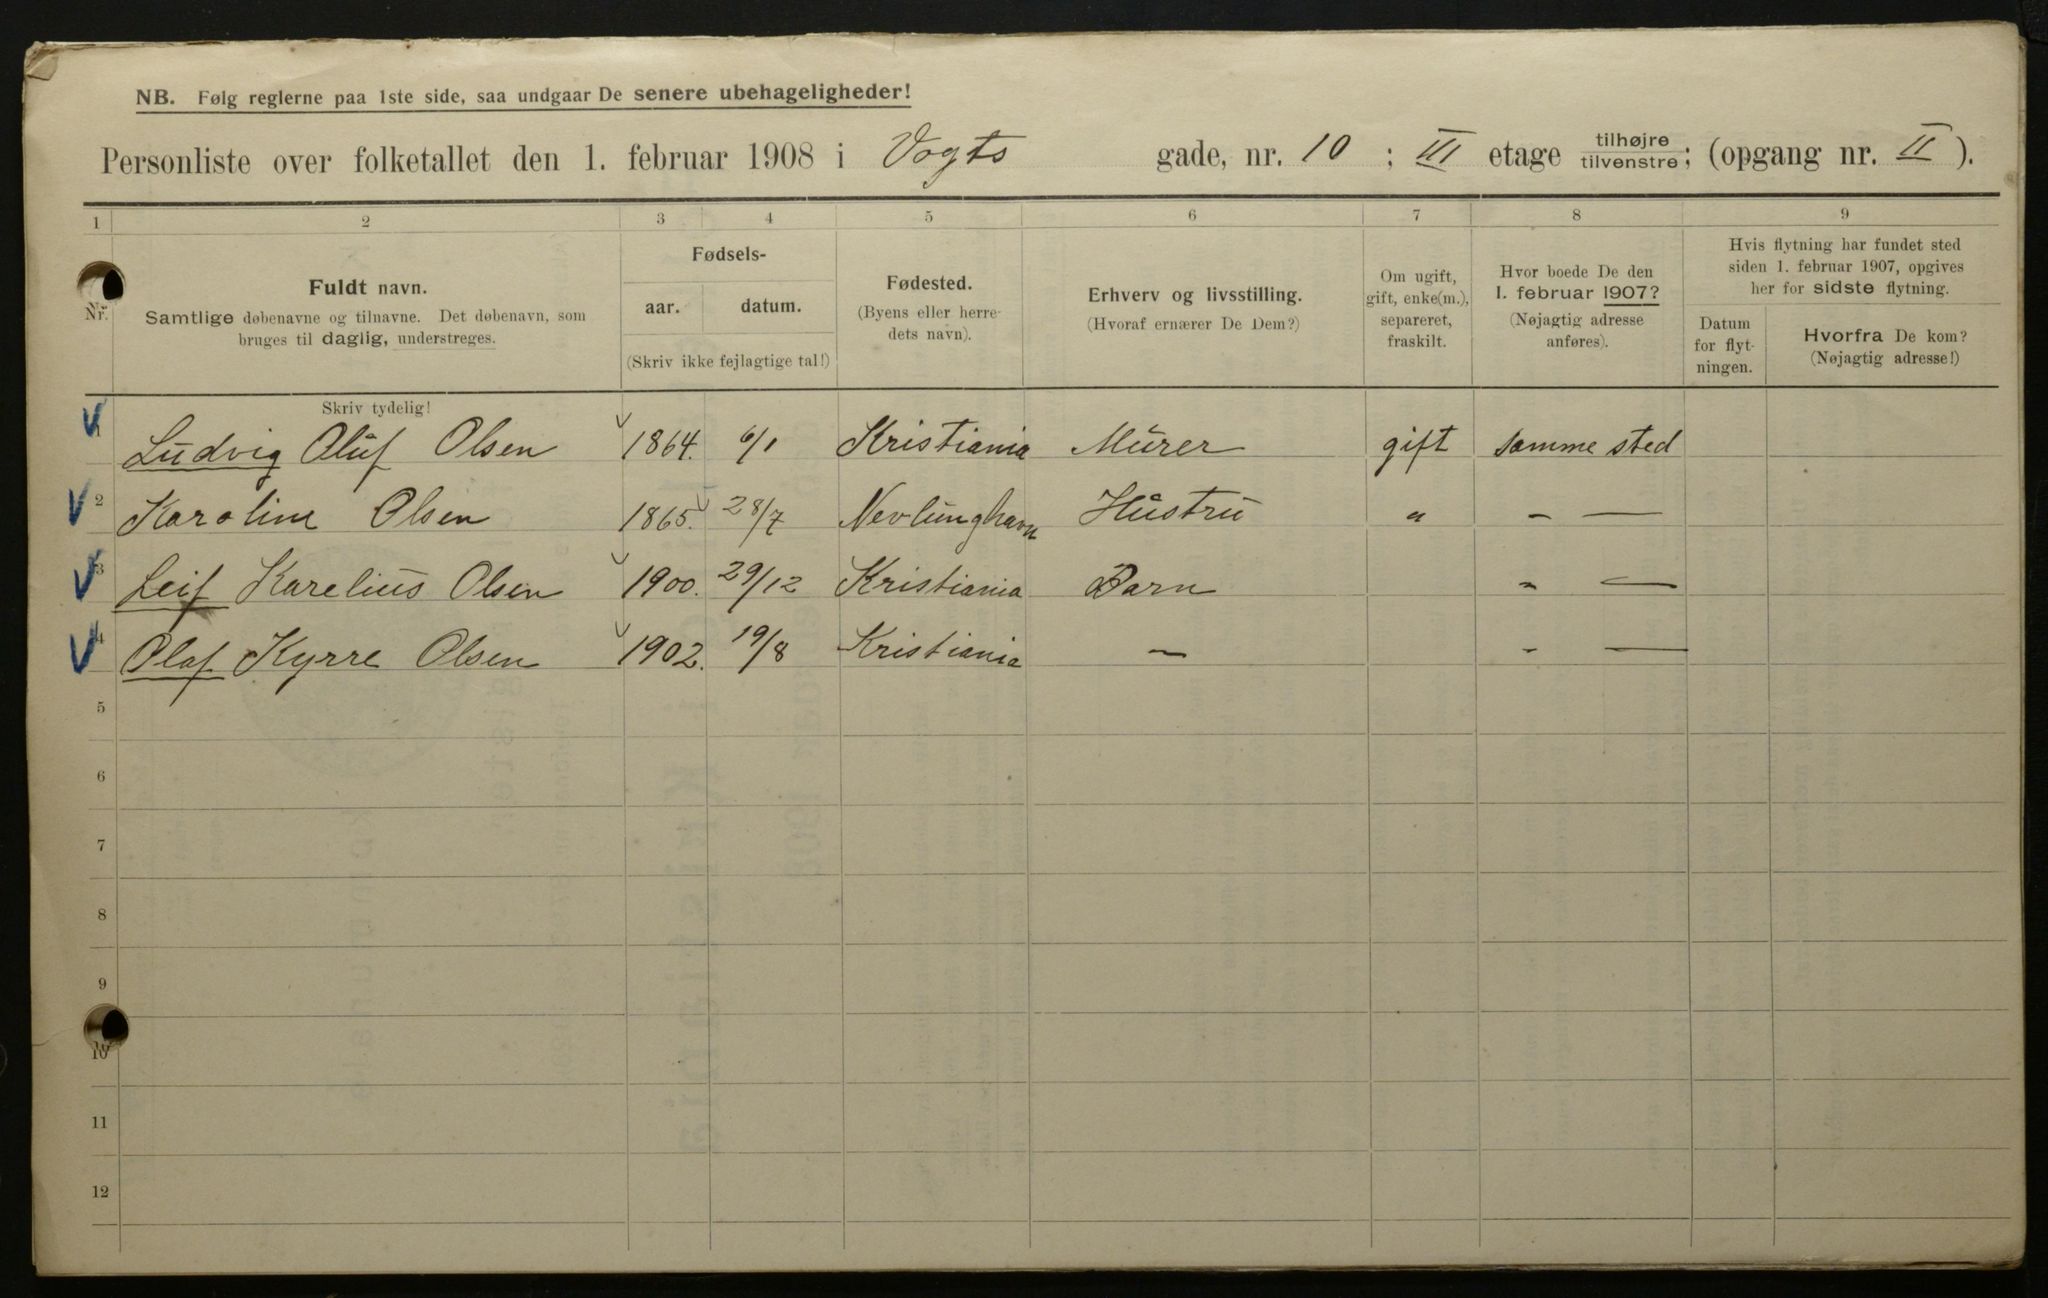 NB. Følg reglerne paa 1ste side, saa undgaar De senere ubehageligheder!
Personliste over folketallet den 1. februar 1908 i Vogts gade, nr. 10 ; III etage tilhøjre tilvenstre; (opgang nr. II ).
1 2 3 4 5 6 7 8 9
Nr.
Fuldt navn.
Samtlige døbenavne og tilnavne. Det døbenavn, som
bruges til daglig, understreges.
Skriv tydelig!
Fødsels-
aar. datum.
(Skriv ikke fejlagtige tal!)
Fødested.
(Byens eller herre-
dets navn).
Erhverv og livsstilling.
(Hvoraf ernærer De Dem?)
Om ugift,
gift, enke(m.),
separeret,
fraskilt.
Hvor boede De den
1. februar 1907?
(Nøjagtig adresse
anføres).
Hvis flytning har fundet sted
siden 1. februar 1907, opgives
her for sidste flytning.
Datum
for flyt-
ningen.
Hvorfra De kom?
(Nøjagtig adresse!)
1 Ludvig Oluf Olsen 1864. 6/1 Kristiania Murer gift samme sted
2 Karoline Olsen 1865. 28/7 Nevlunghavn Hustru " - —
3 Leif Karelius Olsen 1900. 29/12 Kristiania Barn " —
4 Olaf Kyrre Olsen 1902. 19/8 Kristiania — - —
5
6
7
8
9
10
11
12